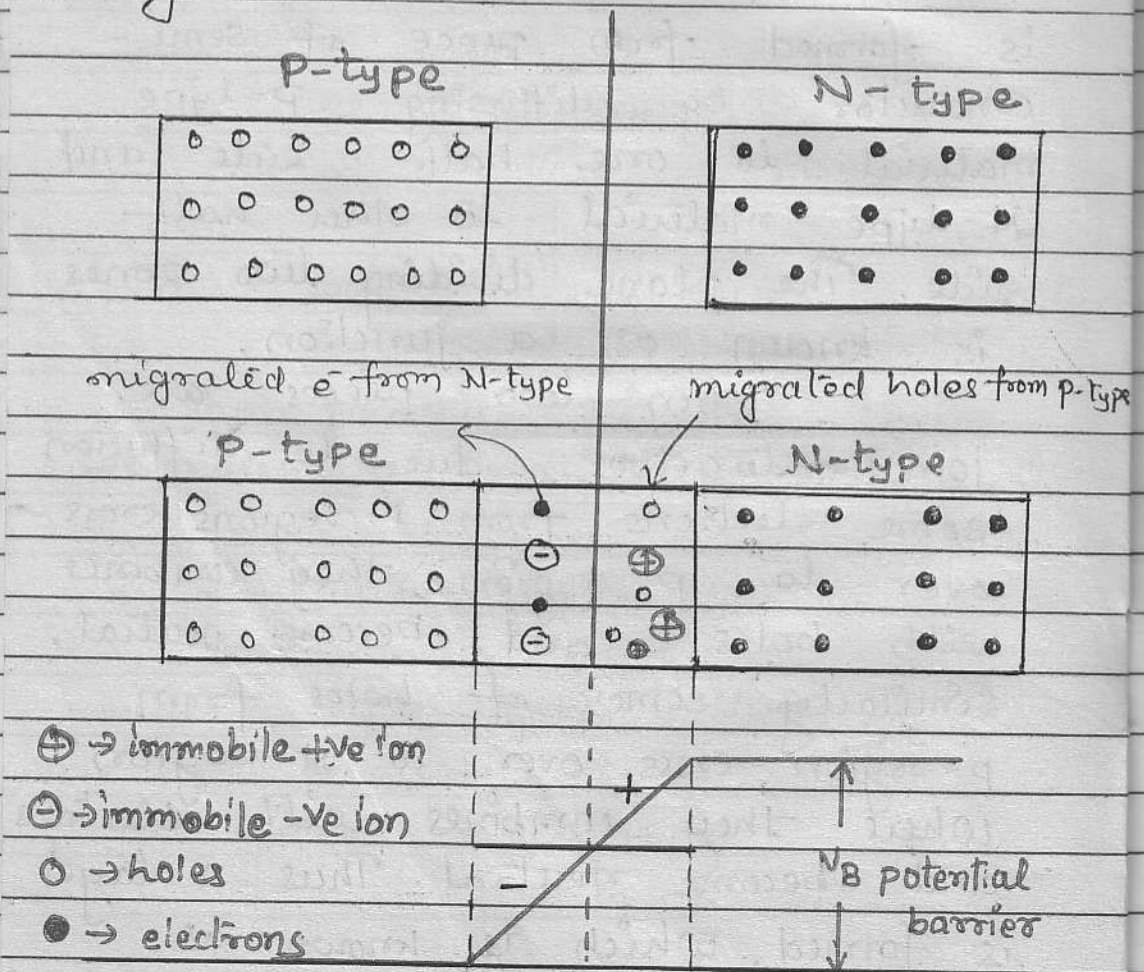 P-type
N-type
migrated e̅ from N-type
migrated holes from p-type
P-type
N-type
⊕ → immobile +ve ion
⊖ → immobile -ve ion
○ → holes
● → electrons
+
-
VB potential
barrier